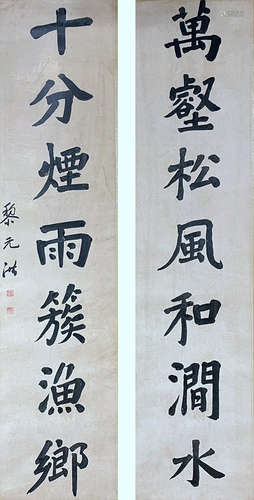 萬壑松風和澗水
十分煙雨簇漁鄉
黎元洪